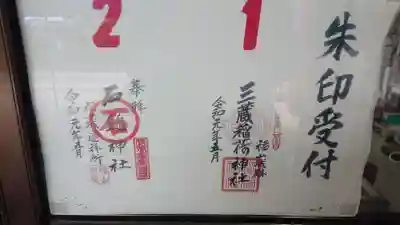 朱印受付
1
福蔵
三蔵稲荷神社
令和元年五月
2
奉拝
石鎚神社
遥拝所
令和元年五月